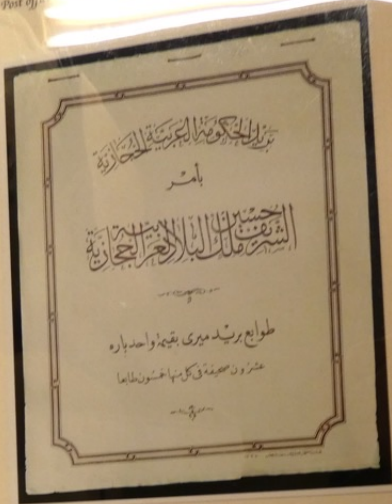 Post off
بريد الحكومة العربية الحجازية
بأمر
الشريف حسين ملك البلاد العربية الحجازية
طوابع بريد ميرى بقيمة واحد باره
عشرون صحيفة فى كل منها خمسون طابعا